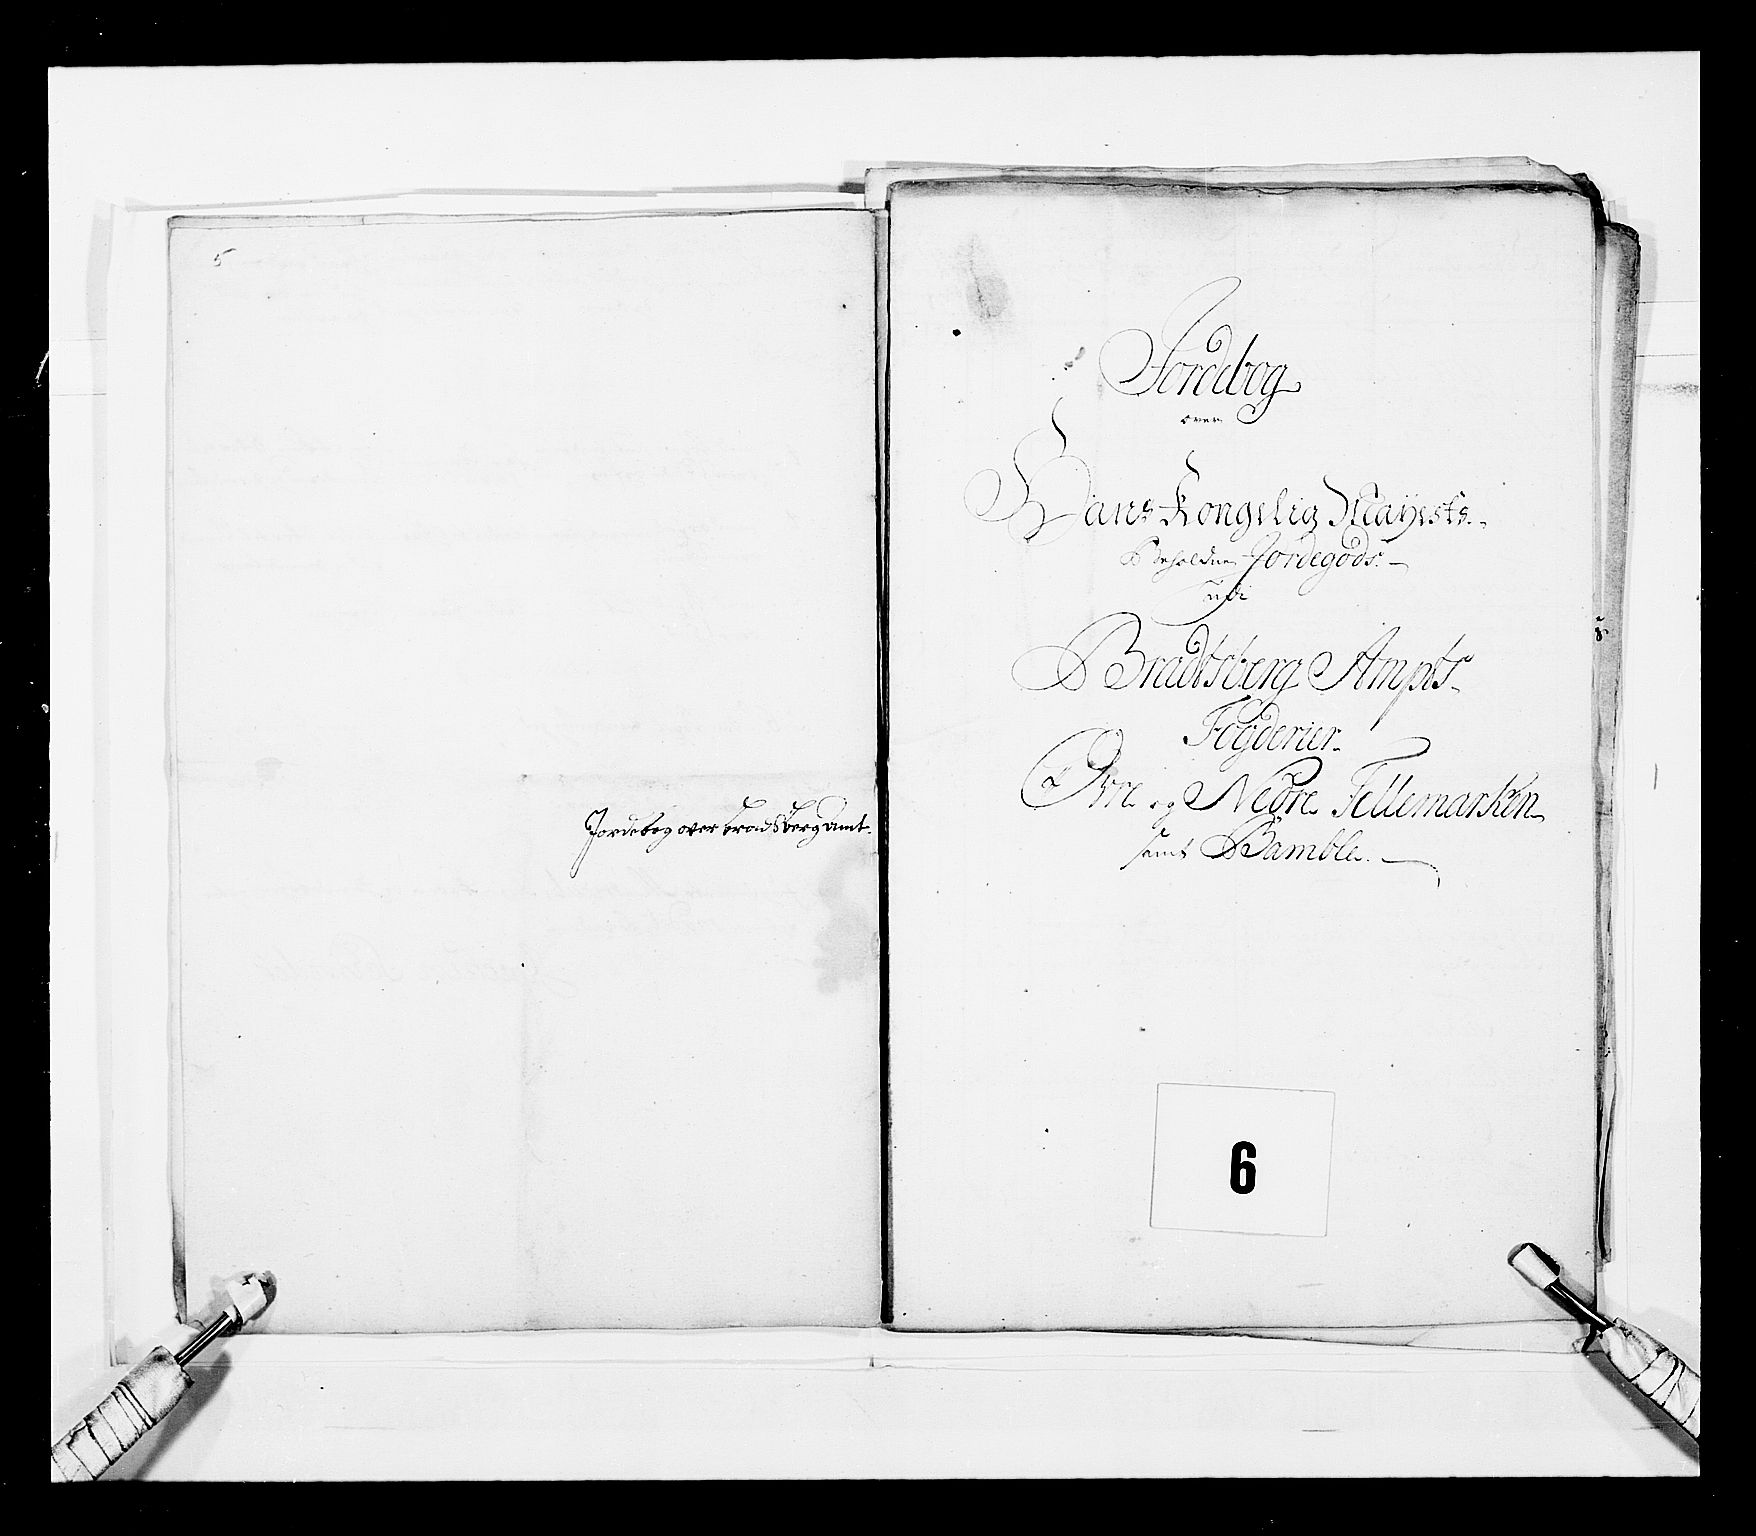 5
Jordebog over bradsberg amt.
Jordebog
over
Hans Kongelig Mayests.
Beholdne Jordegods.
udi
Bradtsberg Ampts
Fogderier.
Øvre og Nedre Tellemarken
samt Bamble.
6